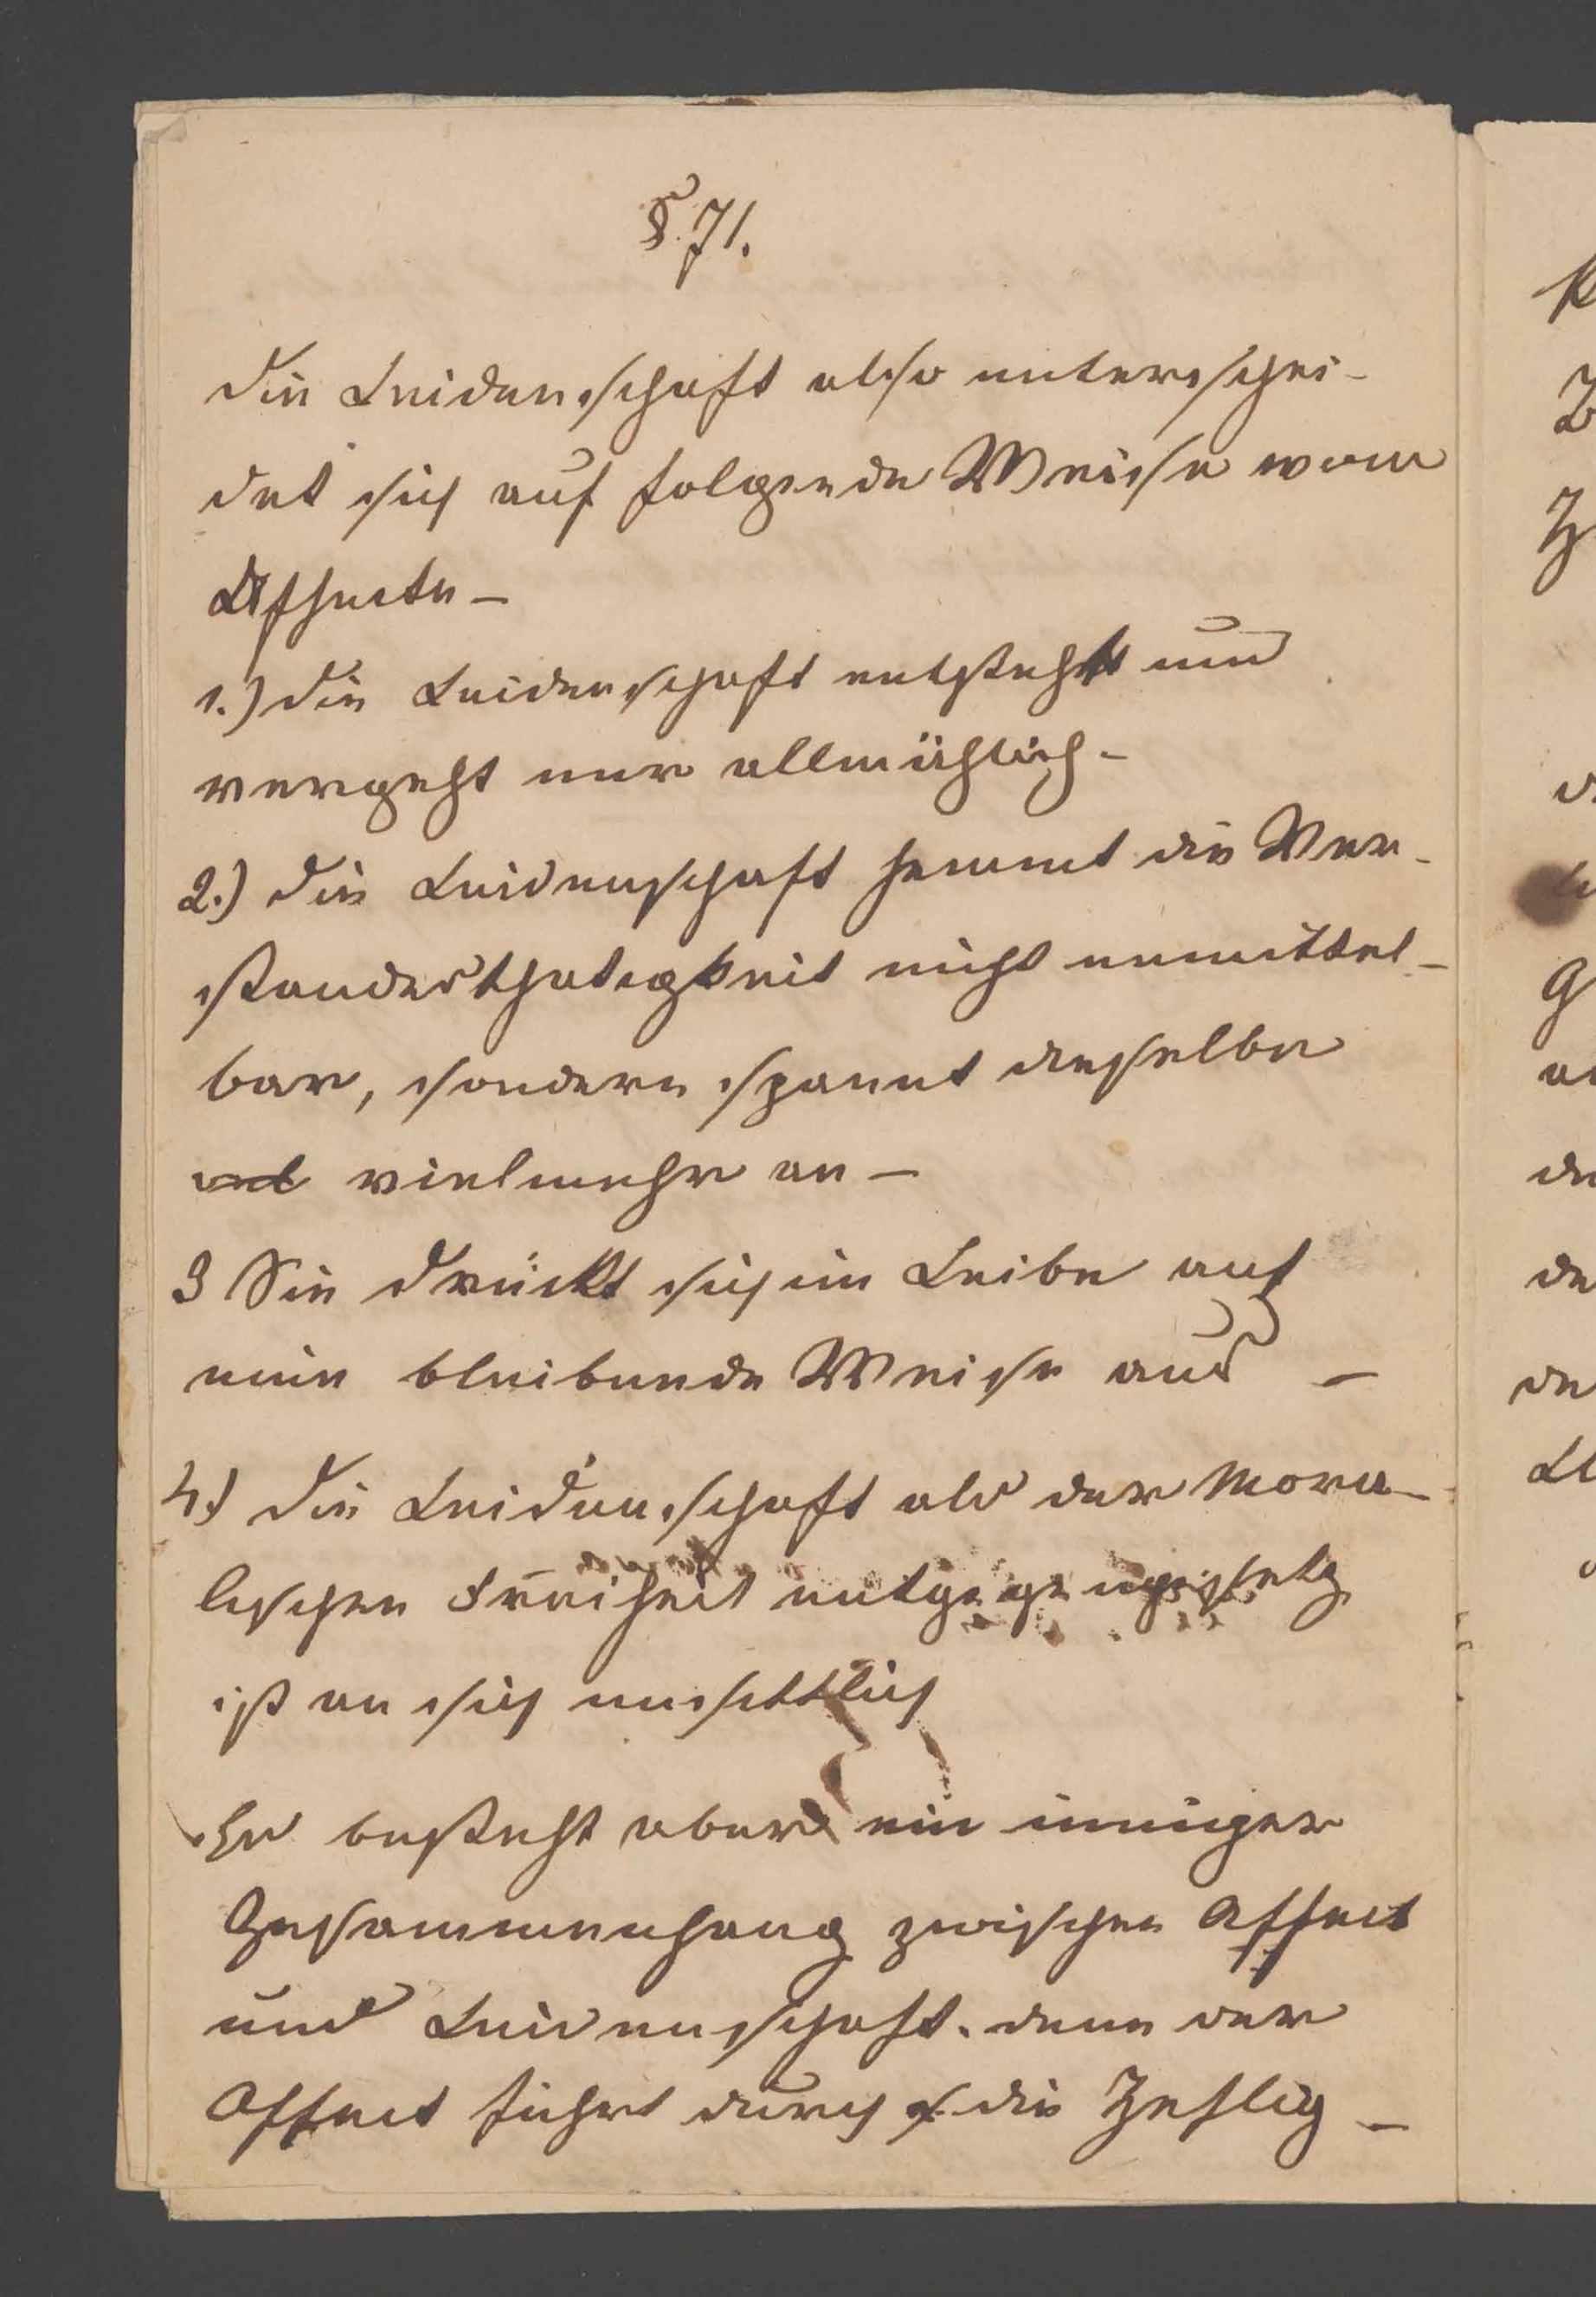 § 71.
die Leidenschaft also unterschei-
det sich auf folgende Weise vom
Affecte –
1.) die Leidenschaft entsteht und
vergeht nur allmählich –
2.) die Leidenschaft hemmt die Ver-
standesthatigkeit nicht unmittel-
bar, sondern spannt dieselbe
vielmehr an –
3 Sie drückt sich im Leibe auf
eine bleibende Weise aus –
4.) die Leidenschaft als der Mora-
lischen Freiheit entgegengesetz
ist an sich unsittlich
Es besteht aber ein inniger
Zusammenhang zwischen Affect
und Leidenschaft. denn der
Affect führt durch die